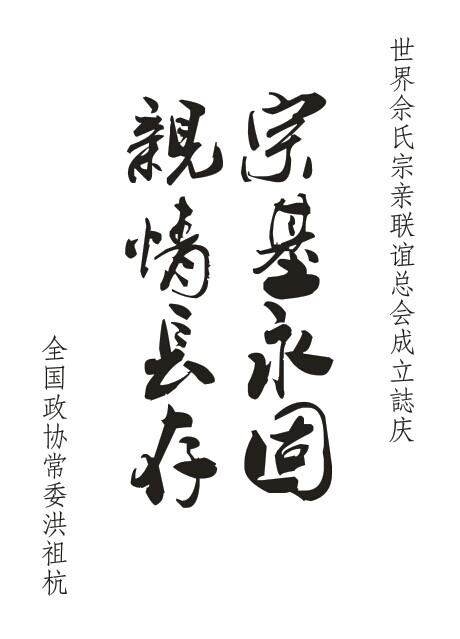 世界佘氏宗亲联谊总会成立誌庆
宗基永固
親情長存
全国政协常委洪祖杭